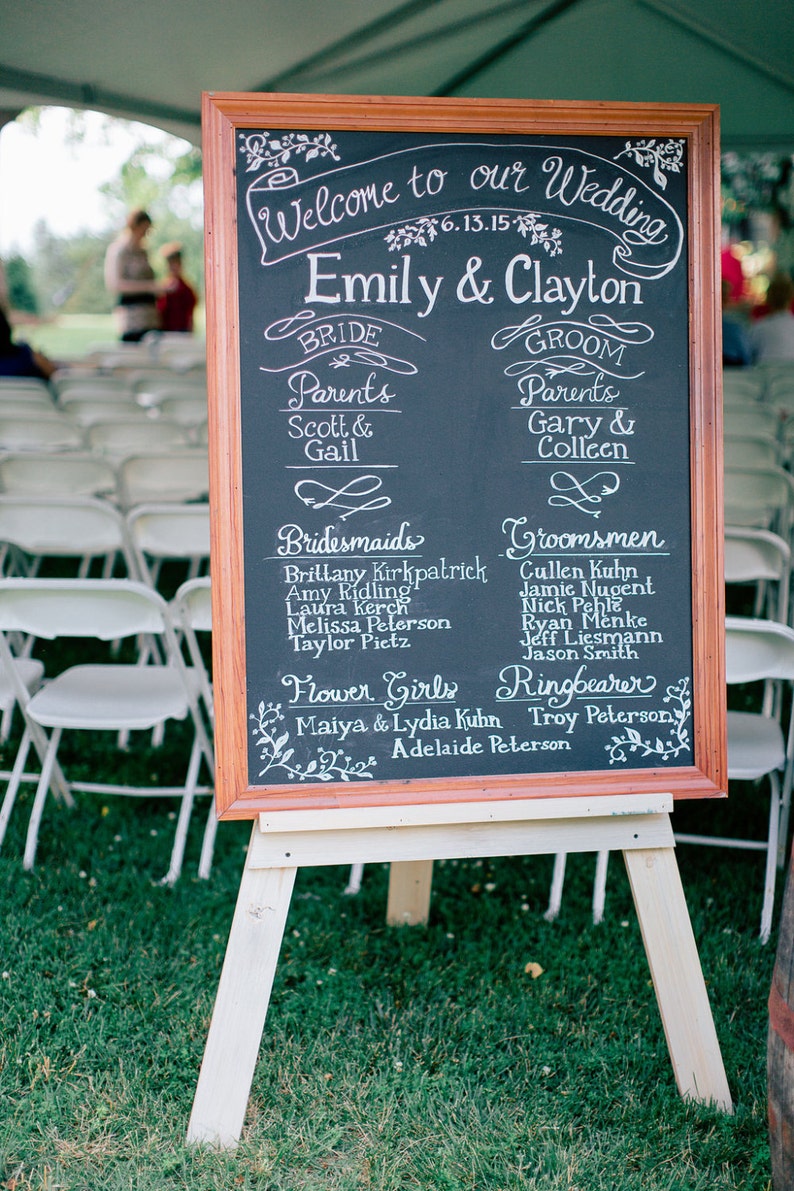 Welcome to our Wedding
6.13.15
Emily & Clayton
BRIDE
Parents
Scott &
Gail
Bridesmaids
Brittany Kirkpatrick
Amy Ridling
Laura Kerch
Melissa Peterson
Taylor Pietz
Flower Girls
Maiya & Lydia Kuhn
Adelaide Peterson
GROOM
Parents
Gary &
Colleen
Groomsmen
Cullen Kuhn
Jamie Nugent
Nick Pehle
Ryan Menke
Jeff Liesmann
Jason Smith
Ringbearer
Troy Peterson